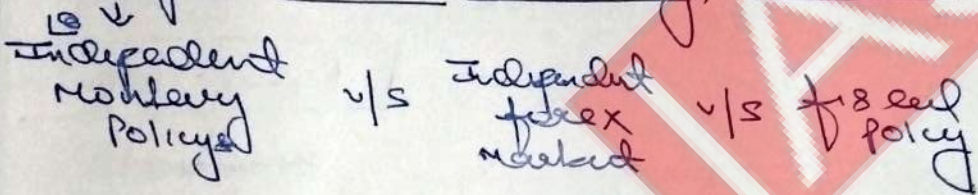 Independent
Monetary
Policy
v/s
Independent
forex
market
v/s
fiscal
policy
IA